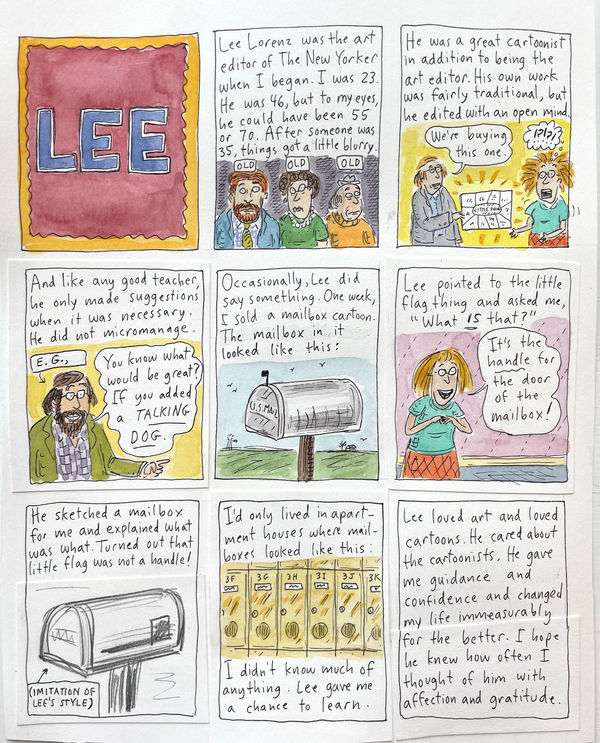 LEE
Lee Lorenz was the art
editor of The New Yorker
when I began. I was 23.
He was 46, but to my eyes,
he could have been 55
or 70. After someone was
35, things got a little blurry.
OLD
OLD
OLD
He was a great cartoonist
in addition to being the
art editor. His own work
was fairly traditional, but
he edited with an open mind.
We're buying
this one.
?!?!?
LITTLE THINGS
And like any good teacher,
he only made suggestions
when it was necessary.
He did not micromanage.
E.G.,
You know what
would be great?
If you added
a TALKING
DOG.
Occasionally, Lee did
say something. One week,
I sold a mailbox cartoon.
The mailbox in it
looked like this:
U.S. MAIL
Lee pointed to the little
flag thing and asked me,
"What IS that?"
It's the
handle for
the door
of the
mailbox!
He sketched a mailbox
for me and explained what
was what. Turned out that
little flag was not a handle!
(IMITATION OF
LEE'S STYLE)
I'd only lived in apart-
ment houses where mail-
boxes looked like this:
3F
3G
3H
3I
3J
3K
I didn't know much of
anything. Lee gave me
a chance to learn.
Lee loved art and loved
cartoons. He cared about
the cartoonists. He gave
me guidance and
confidence and changed
my life immeasurably
for the better. I hope
he knew how often I
thought of him with
affection and gratitude.